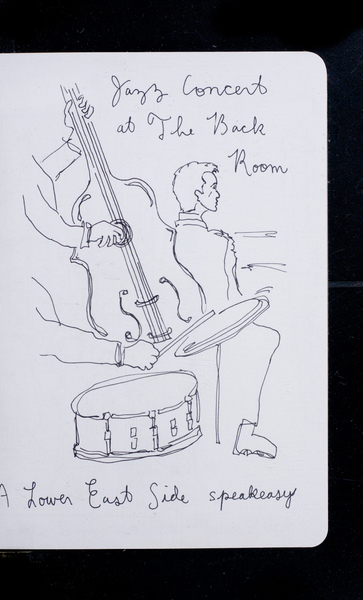 Jazz Concert
at The Back
Room
A Lower East Side speakeasy